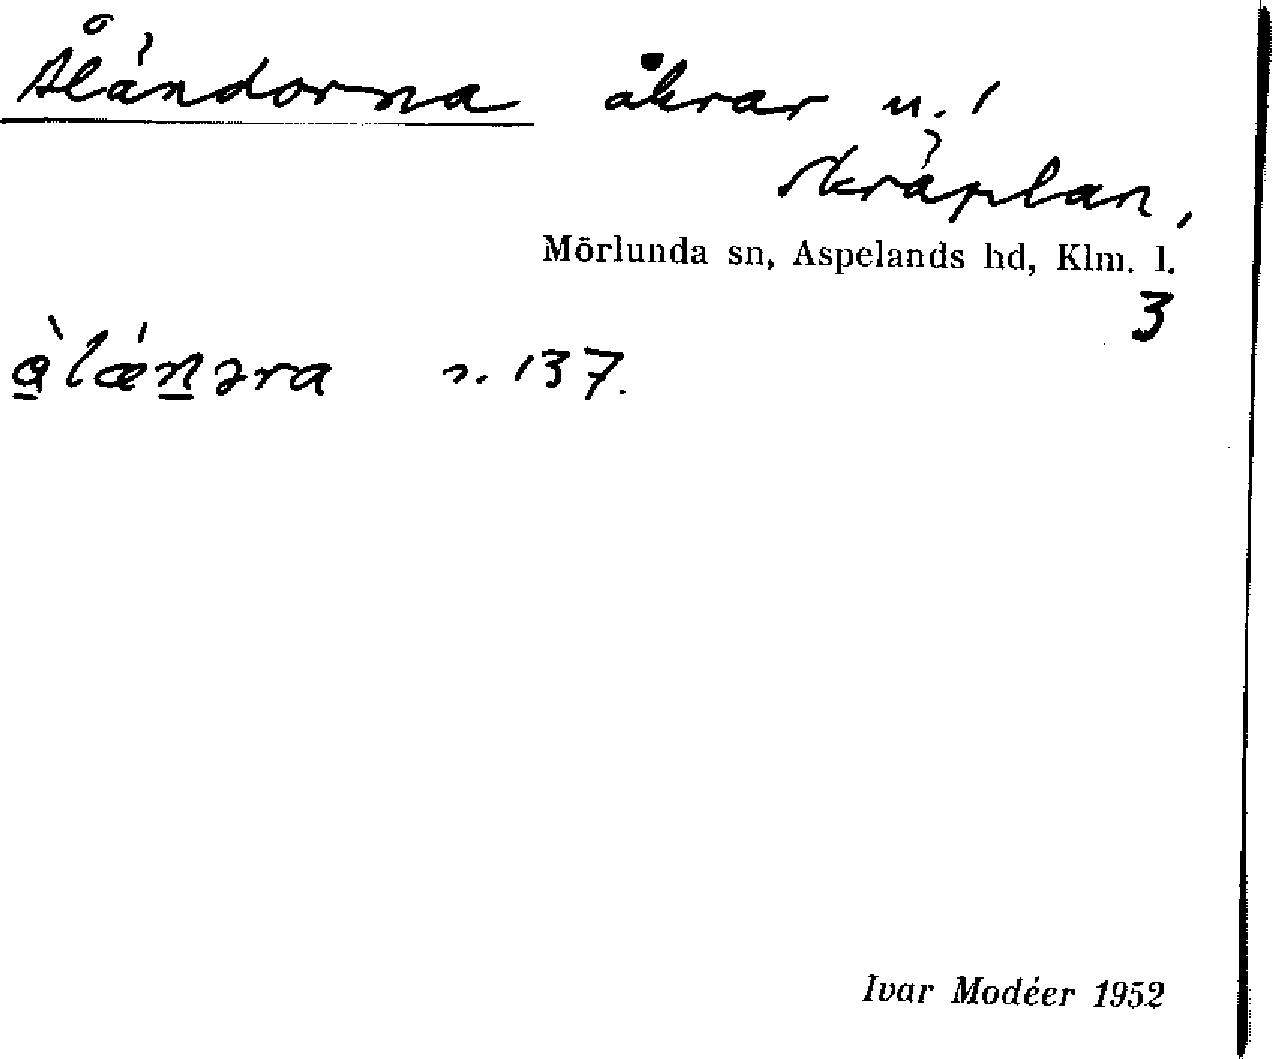 Åländorna åkrar u. /
Skräplan,
Mörlunda sn, Aspelands hd, Klm. l.
3
àlǽnəra s. 137.
Ivar Modéer 1952